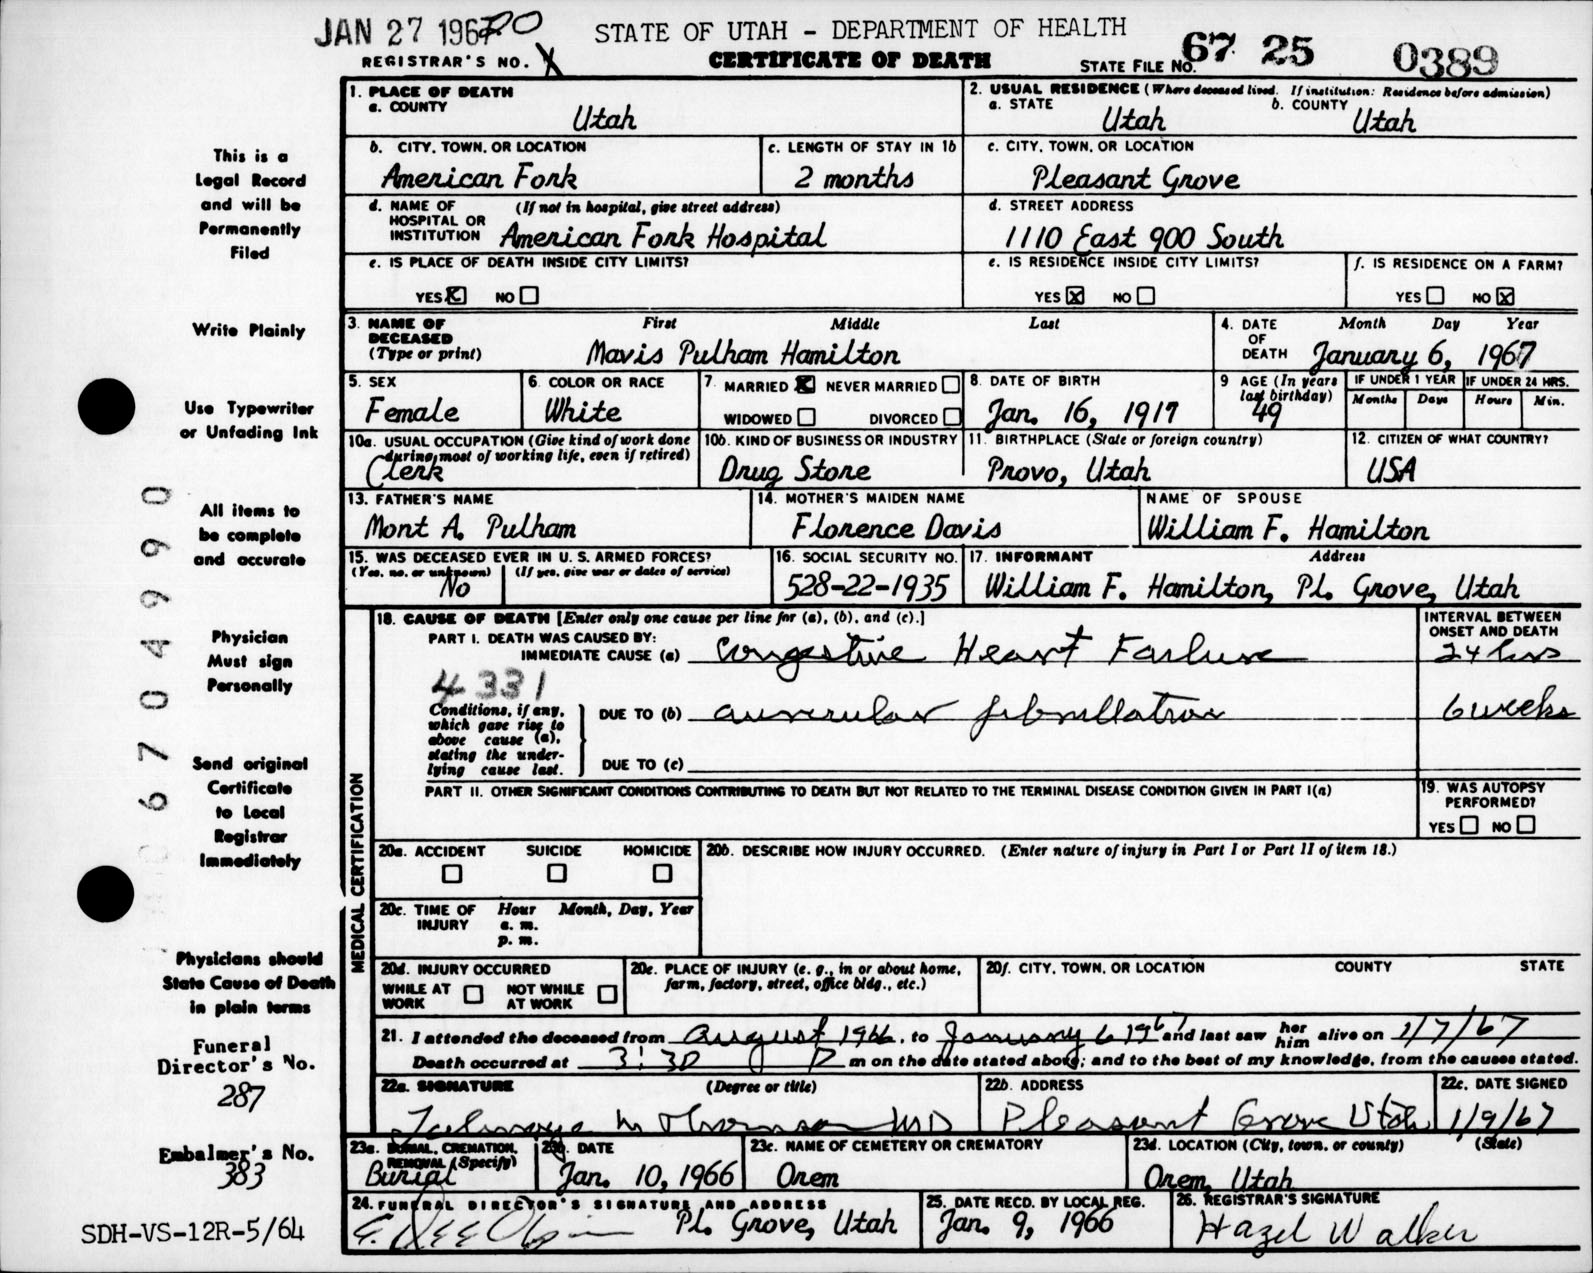 JAN 27 1967
STATE OF UTAH - DEPARTMENT OF HEALTH
REGISTRAR'S NO. X
CERTIFICATE OF DEATH
STATE FILE NO. 67 25 0389
1. PLACE OF DEATH
a. COUNTY
Utah
2. USUAL RESIDENCE (Where deceased lived. If institution: Residence before admission)
a. STATE b. COUNTY
Utah Utah
b. CITY, TOWN, OR LOCATION
American Fork
c. LENGTH OF STAY IN 1b
2 months
c. CITY, TOWN, OR LOCATION
Pleasant Grove
d. NAME OF (If not in hospital, give street address)
HOSPITAL OR
INSTITUTION American Fork Hospital
d. STREET ADDRESS
1110 East 900 South
e. IS PLACE OF DEATH INSIDE CITY LIMITS?
YES X NO
e. IS RESIDENCE INSIDE CITY LIMITS?
YES X NO
f. IS RESIDENCE ON A FARM?
YES NO X
3. NAME OF First Middle Last
DECEASED
(Type or print) Mavis Pulham Hamilton
4. DATE Month Day Year
OF
DEATH January 6, 1967
5. SEX
Female
6. COLOR OR RACE
White
7. MARRIED X NEVER MARRIED
WIDOWED DIVORCED
8. DATE OF BIRTH
Jan. 16, 1917
9 AGE (In years
last birthday)
49
IF UNDER 1 YEAR IF UNDER 24 HRS.
Months Days Hours Min.
10a. USUAL OCCUPATION (Give kind of work done
during most of working life, even if retired)
Clerk
10b. KIND OF BUSINESS OR INDUSTRY
Drug Store
11. BIRTHPLACE (State or foreign country)
Provo, Utah
12. CITIZEN OF WHAT COUNTRY?
USA
13. FATHER'S NAME
Mont A. Pulham
14. MOTHER'S MAIDEN NAME
Florence Davis
NAME OF SPOUSE
William F. Hamilton
15. WAS DECEASED EVER IN U. S. ARMED FORCES?
(Yes, no, or unknown) (If yes, give war or dates of service)
No
16. SOCIAL SECURITY NO.
528-22-1935
17. INFORMANT Address
William F. Hamilton, Pl. Grove, Utah
18. CAUSE OF DEATH [Enter only one cause per line for (a), (b), and (c).]
INTERVAL BETWEEN
ONSET AND DEATH
PART I. DEATH WAS CAUSED BY:
IMMEDIATE CAUSE (a) Congestive Heart Failure 24 hrs
4331
Conditions, if any,
which gave rise to
above cause (a),
stating the under-
lying cause last.
DUE TO (b) auricular fibrillation 6 weeks
DUE TO (c)
PART II. OTHER SIGNIFICANT CONDITIONS CONTRIBUTING TO DEATH BUT NOT RELATED TO THE TERMINAL DISEASE CONDITION GIVEN IN PART I(a)
19. WAS AUTOPSY
PERFORMED?
YES NO
MEDICAL CERTIFICATION
20a. ACCIDENT SUICIDE HOMICIDE
20b. DESCRIBE HOW INJURY OCCURRED. (Enter nature of injury in Part I or Part II of item 18.)
20c. TIME OF Hour Month, Day, Year
INJURY a. m.
p. m.
20d. INJURY OCCURRED
WHILE AT NOT WHILE
WORK AT WORK
20e. PLACE OF INJURY (e. g., in or about home,
farm, factory, street, office bldg., etc.)
20f. CITY, TOWN, OR LOCATION COUNTY STATE
21. I attended the deceased from August 1966, to January 6 1967 and last saw her him alive on 1/7/67
Death occurred at 3:30 P m on the date stated above; and to the best of my knowledge, from the causes stated.
22a. SIGNATURE (Degree or title)
MD
22b. ADDRESS
Pleasant Grove Utah
22c. DATE SIGNED
1/9/67
23a. BURIAL, CREMATION,
REMOVAL (Specify)
Burial
23b. DATE
Jan. 10, 1966
23c. NAME OF CEMETERY OR CREMATORY
Orem
23d. LOCATION (City, town, or county) (State)
Orem, Utah
24. FUNERAL DIRECTOR'S SIGNATURE AND ADDRESS
Pl. Grove, Utah
25. DATE RECD. BY LOCAL REG.
Jan. 9, 1966
26. REGISTRAR'S SIGNATURE
Hazel Walker
This is a
Legal Record
and will be
Permanently
Filed
Write Plainly
Use Typewriter
or Unfading Ink
All items to
be complete
and accurate
Physician
Must sign
Personally
Send original
Certificate
to Local
Registrar
Immediately
Physicians should
State Cause of Death
in plain terms
Funeral
Director's No.
287
Embalmer's No.
383
SDH-VS-12R-5/64
67049990